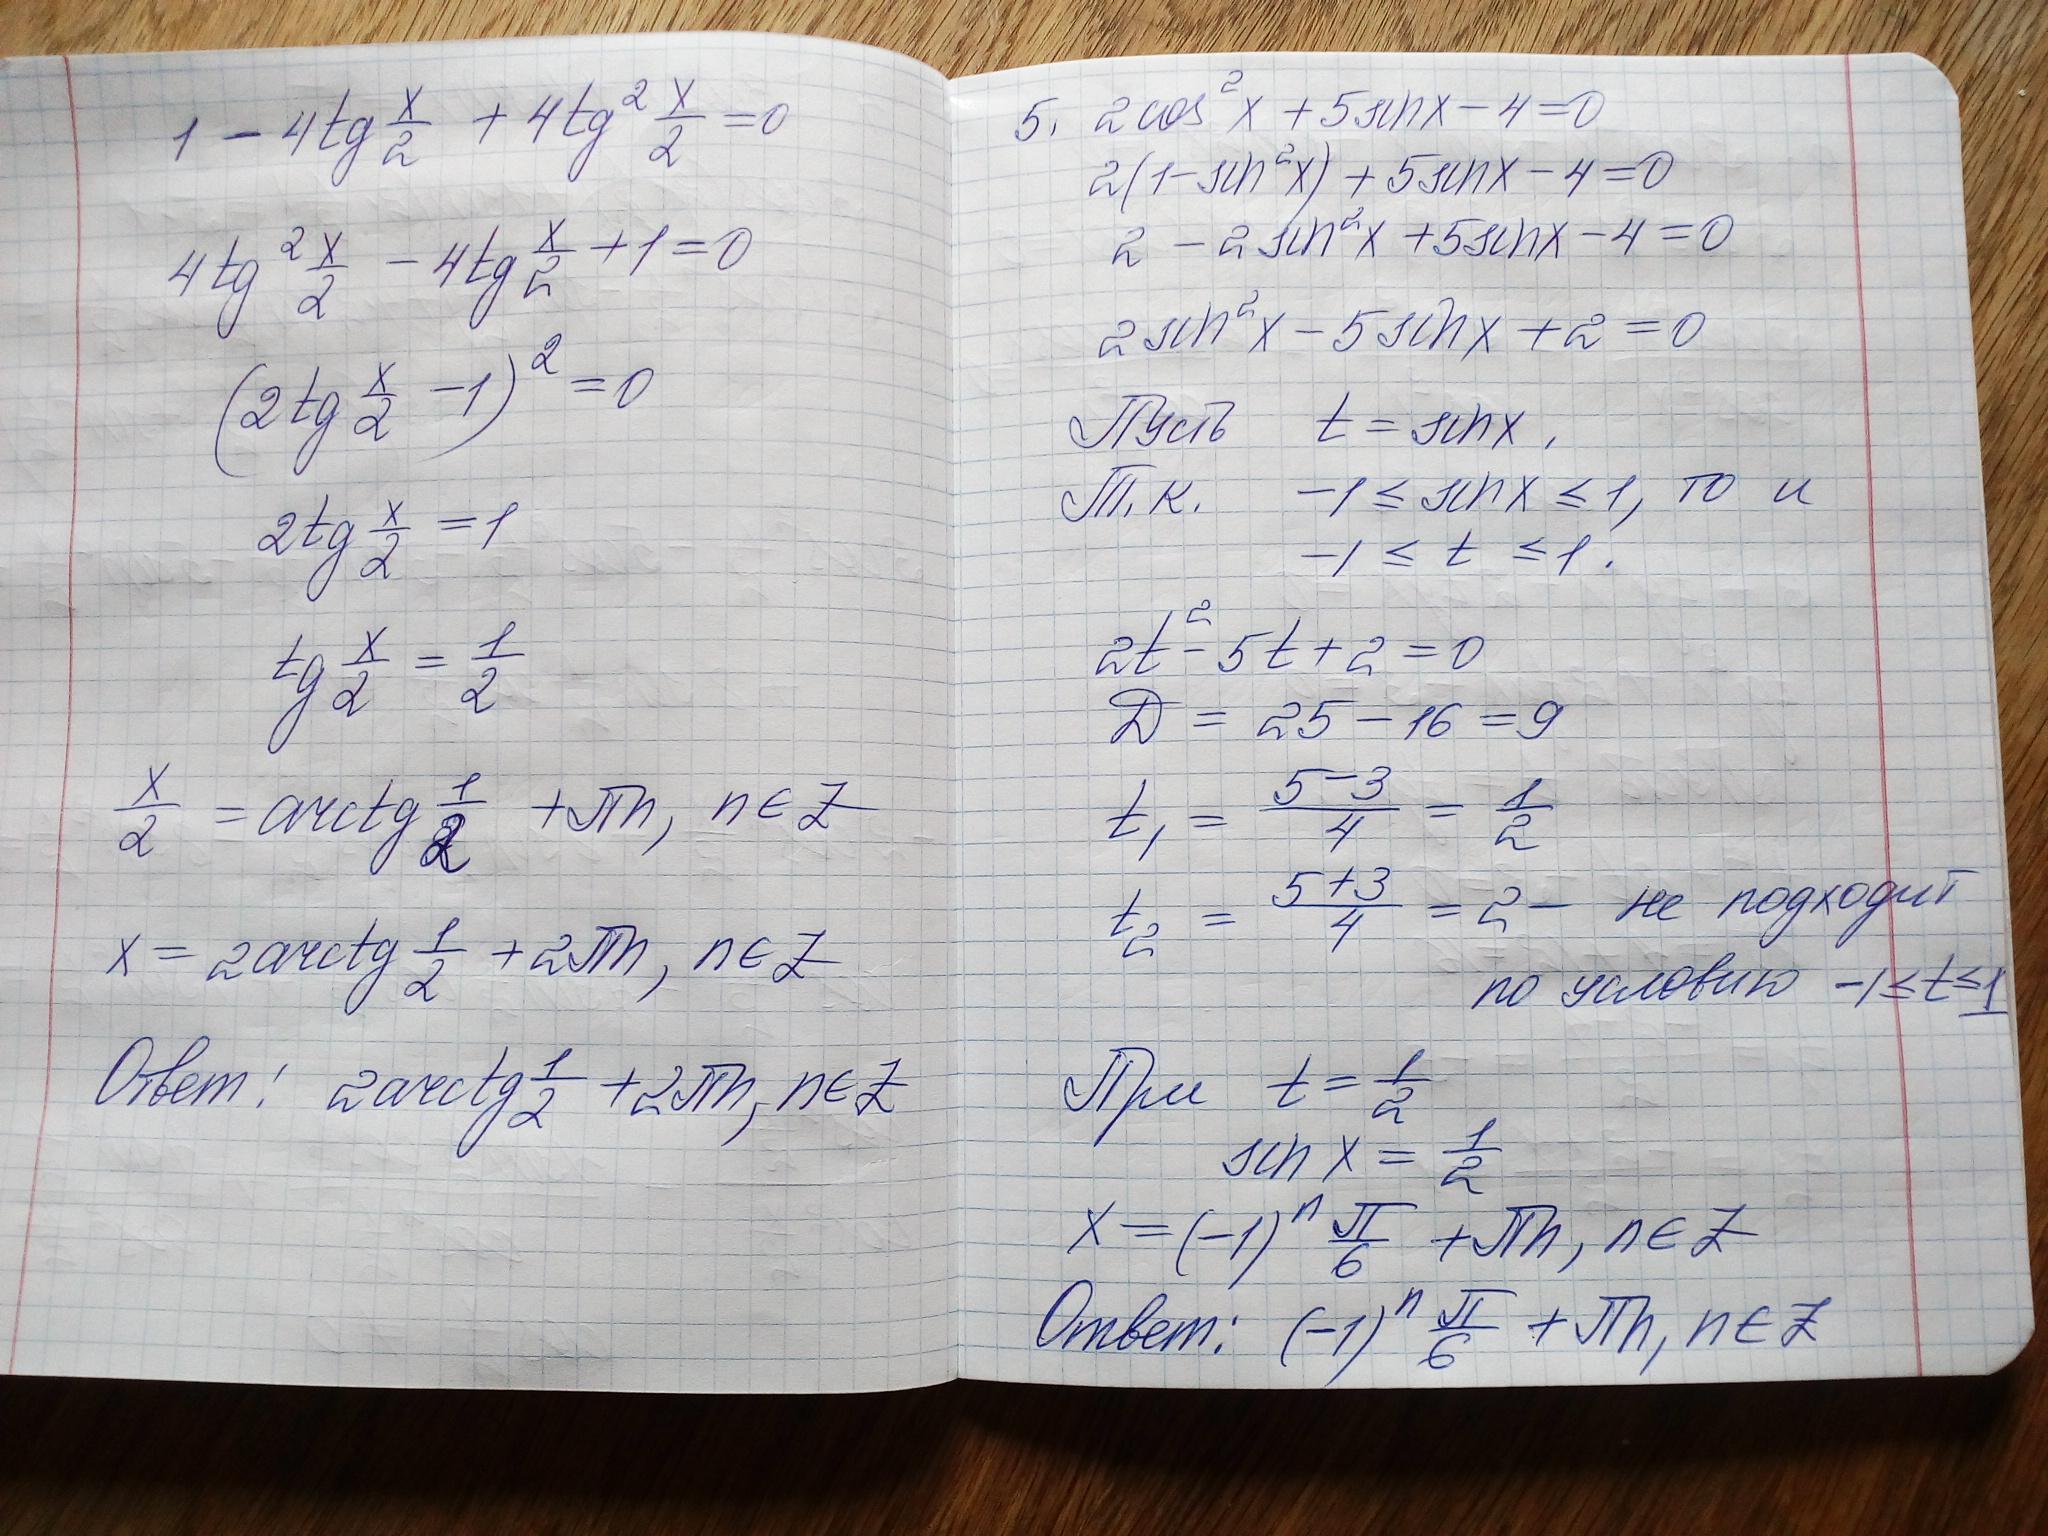 1 - 4tg x/2 + 4tg² x/2 = 0
4tg² x/2 - 4tg x/2 + 1 = 0
(2tg x/2 - 1)² = 0
2tg x/2 = 1
tg x/2 = 1/2
x/2 = arctg 1/2 + πn, n∈Z
x = 2arctg 1/2 + 2πn, n∈Z
Ответ: 2arctg 1/2 + 2πn, n∈Z
5. 2cos²x + 5sinx - 4 = 0
2(1 - sin²x) + 5sinx - 4 = 0
2 - 2sin²x + 5sinx - 4 = 0
2sin²x - 5sinx + 2 = 0
Пусть t = sinx,
Т.к. -1 ≤ sinx ≤ 1, то и
-1 ≤ t ≤ 1.
2t² - 5t + 2 = 0
Д = 25 - 16 = 9
t₁ = (5-3)/4 = 1/2
t₂ = (5+3)/4 = 2 - не подходит
по условию -1 ≤ t ≤ 1
При t = 1/2
sin x = 1/2
x = (-1)ⁿ π/6 + πn, n∈Z
Ответ: (-1)ⁿ π/6 + πn, n∈Z